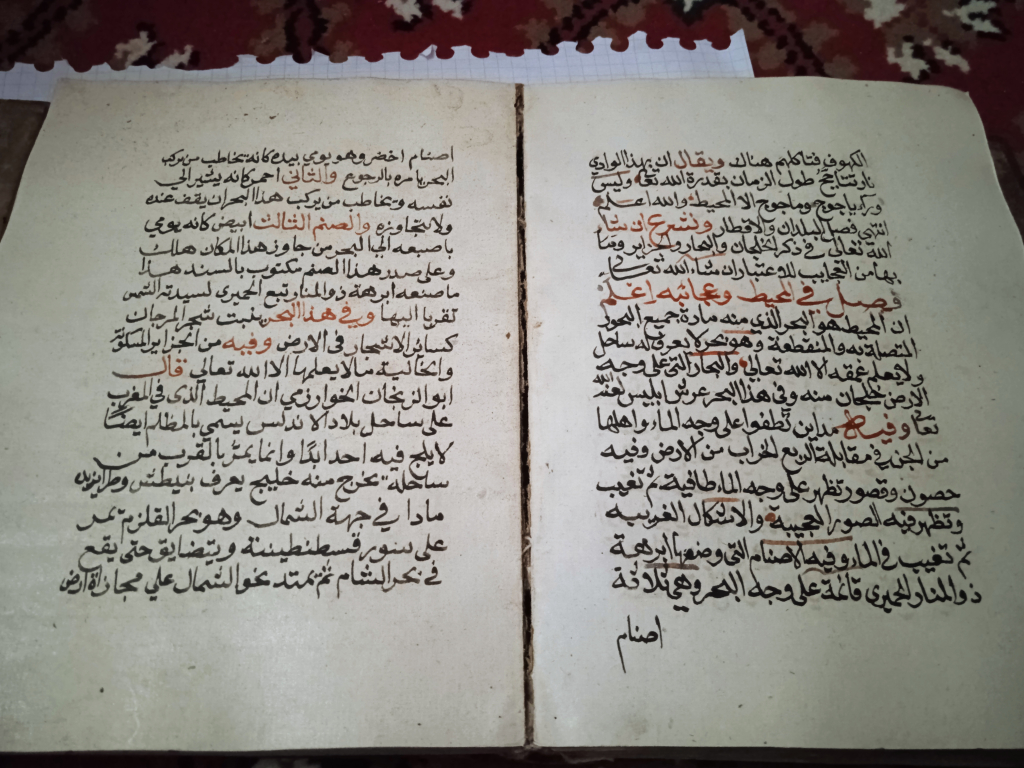 الكهوف فتاكلهم هناك ويقال ان بهذا الوادي
نار تتاجج طول الزمان بقدرة الله تعالى وليس
وراء ياجوج وماجوج الا المحيط والله اعلم
انتهى فصل البلدان والاقطار ونشرع ان شاء
الله تعالى في ذكر الخلجان والبحار والجزاير وما
بها من العجايب للاعتبار ان شاء الله تعالى
فصل في المحيط وعجائبه اعلم
ان المحيط هو البحر الذي منه مادة جميع البحور
المتصلة به والمنقطعة وهو بحر لا يعرف له ساحل
ولا يعلم عمقه الا الله تعالى والبحار التي على وجه
الارض خلجان منه وفي هذا البحر عرش ابليس لعنه الله
تعا وفيه مداين تطفوا على وجه الماء واهلها
من الجن في مقابلة الربع الخراب من الارض وفيه
حصون وقصور تظهر على وجه الماء طافية ثم تغيب
وتظهر فيه الصور العجيبة والاشكال الغريبه
ثم تغيب في الماء وفيه الاصنام التي وضعها ابرهة
ذو المنار الحميري قائمة على وجه البحر وهي ثلاثة
اصنام
اصنام اخضر وهو يومي بيده كانه يخاطب من يركب
البحر يامره بالرجوع والثاني احمر كانه يشير الى
نفسه ويخاطب من يركب هذا البحر ان يقف عنده
ولا يتجاوزه والصنم الثالث ابيض كانه يومي
باصبعه الى البحر من جاوز هذا المكان هلك
وعلى صدر هذا الصنم مكتوب بالسند هذا
ما صنعه ابرهة ذو المنار تبع الحميري لسيدته الشمس
تقربا اليها وفي هذا البحر ينبت شجر المرجان
كسائر الاشجار في الارض وفيه من الجزاير المسكونة
والخالية ما لا يعلمها الا الله تعالى قال
ابو الريحان الخوارزمي ان المحيط الذي في المغرب
على ساحل بلاد الاندلس يسمى بالمظلم ايضا
لا يلج فيه احد ابدا وانما يمر بالقرب من
ساحله يخرج منه خليج يعرف بنيطش وطرابزيده
مادا في جهة الشمال وهو بحر القلزم يمر
على سور قسطنطينة ويتضايق حتى يقع
في بحر الشام ثم يمتد نحو الشمال على محاذاة ارض